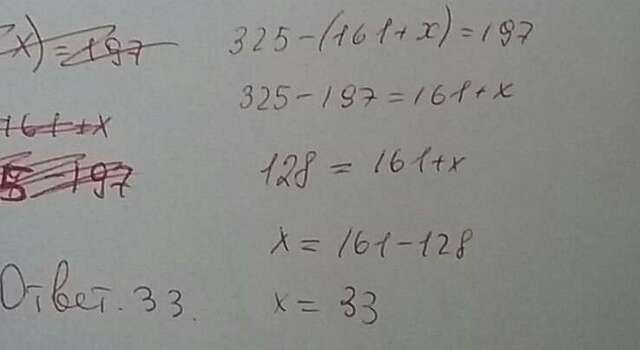 x) = 197
325 - (161 + x) = 197
325 - 197 = 161 + x
161 + x
128 = 161 + x
197
x = 161 - 128
Ответ. 33.
x = 33